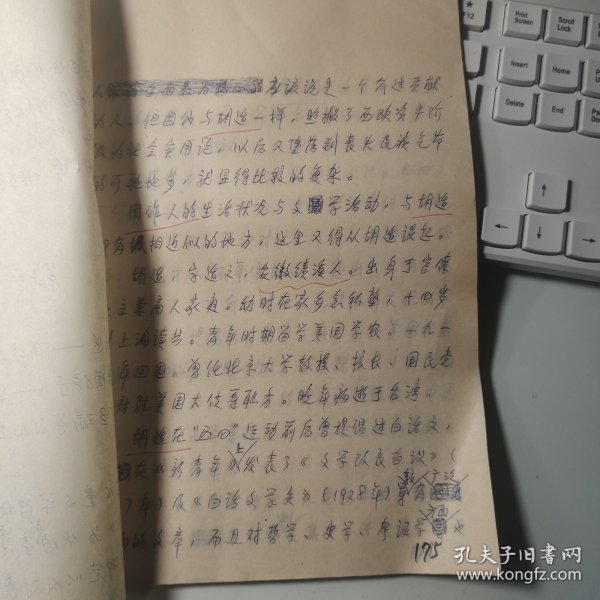 应该说是一个有过贡献
的人。但因他与胡适一样,照搬了西欧资产阶
级的社会实用论,以后又堕落到丧失民族气节
的可耻地步,就显得比较的复杂。
周作人的生活状况与文学活动,与胡适
有很相近似的地方,这里又得从胡适谈起。
胡适,字适之,安徽绩溪人。出身于官僚
地主兼商人家庭。幼时在家乡念私塾,十四岁
到上海读书。青年时期留学美国学农。一九一
年回国。曾任北京大学教授、校长、国民党
驻美国大使等职务。晚年病逝于台湾。
胡适在“五四”运动前后曾提倡过白话文,
在《新青年》上发表了《文学改良刍议》(
7年)及《白话文学史》(1928年)等有较广泛
的文章,而且对哲学、史学、考证学方面也
175
Print Screen
Scroll Lock
F12
Insert
Home
Delete
End
孔夫子旧书网
www.kongfz.com